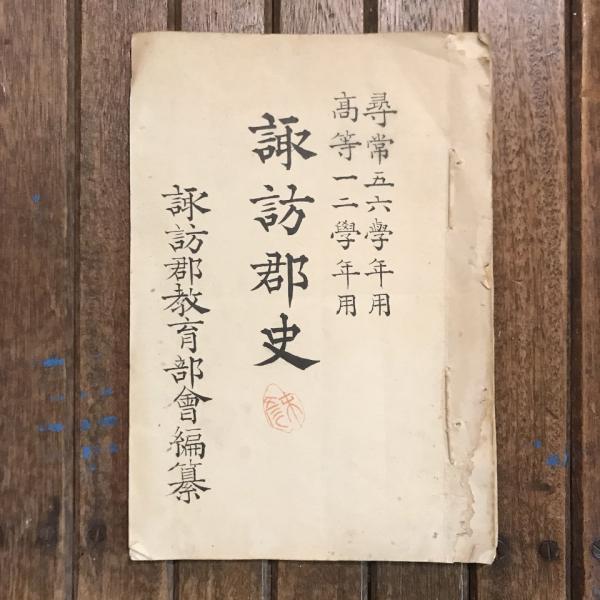 尋常五六學年用
高等一二學年用
諏訪郡史
諏訪郡教育部會編纂